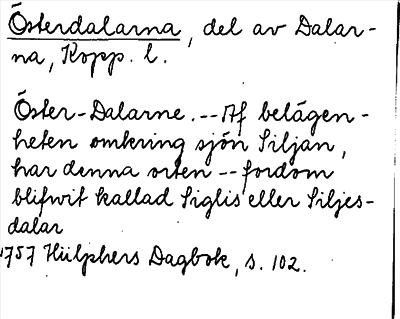 Österdalarna, del av Dalar-
na, Kopp. l.
Öster-Dalarne. -- Af belägen-
heten omkring sjön Siljan,
har denna orten -- fordom
blifwit kallad Siglis eller Siljes-
dalar
1757 Hülphers Dagbok, s. 102.